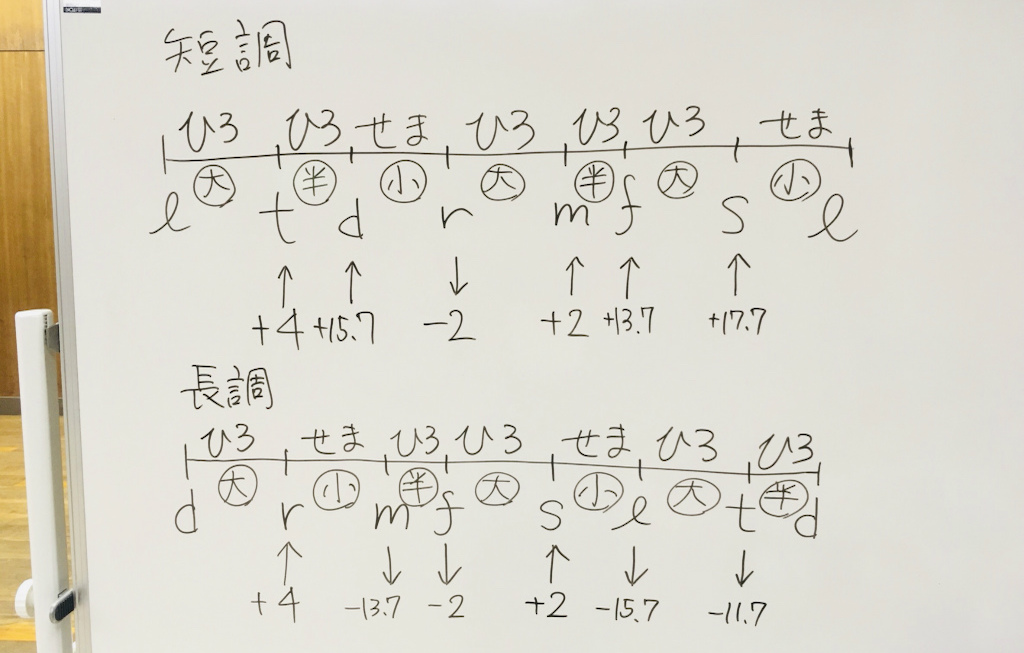 短調
ひろ ひろ せま ひろ ひろ ひろ せま
大 半 小 大 半 大 小
l t d r m f s l
↑ ↑ ↓ ↑ ↑ ↑
+4 +15.7 -2 +2 +13.7 +17.7
長調
ひろ せま ひろ ひろ せま ひろ ひろ
大 小 半 大 小 大 半
d r m f s l t d
↑ ↓ ↓ ↑ ↓ ↓
+4 -13.7 -2 +2 -15.7 -11.7